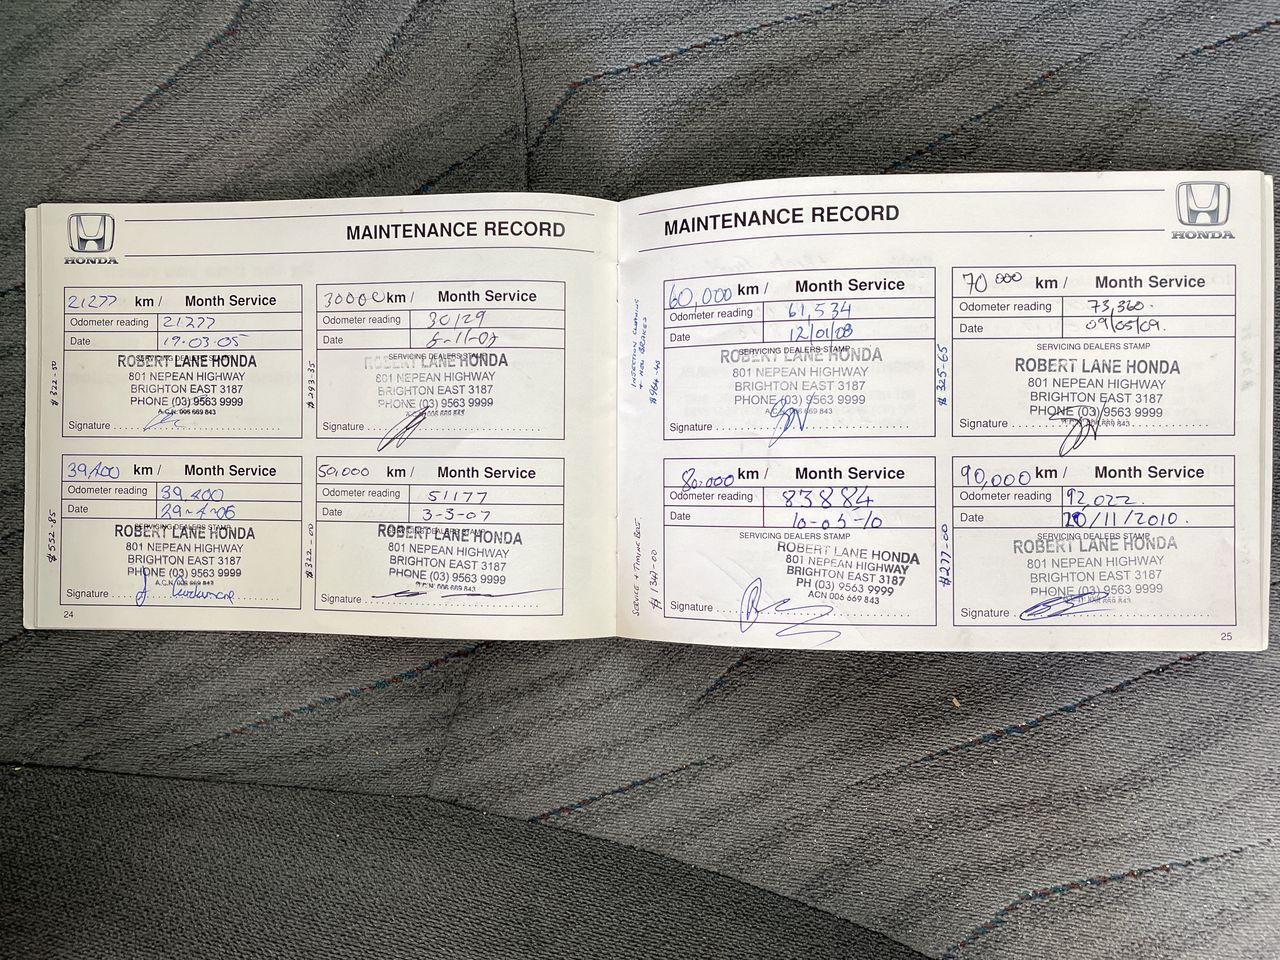 HONDA
MAINTENANCE RECORD
21277 km / Month Service
Odometer reading 21277
Date 17-03-05
SERVICING DEALERS STAMP
ROBERT LANE HONDA
801 NEPEAN HIGHWAY
BRIGHTON EAST 3187
PHONE (03) 9563 9999
A.C.N. 006 669 843
Signature
$322-50
30000 km / Month Service
Odometer reading 30129
Date
SERVICING DEALERS STAMP
ROBERT LANE HONDA
801 NEPEAN HIGHWAY
BRIGHTON EAST 3187
PHONE (03) 9563 9999
A.C.N. 006 669 843
Signature
$293-35
39,400 km / Month Service
Odometer reading 39,400
Date 29-4-06
SERVICING DEALERS STAMP
ROBERT LANE HONDA
801 NEPEAN HIGHWAY
BRIGHTON EAST 3187
PHONE (03) 9563 9999
A.C.N. 006 669 843
Signature
$552-85
50,000 km / Month Service
Odometer reading 51177
Date 3-3-07
SERVICING DEALERS STAMP
ROBERT LANE HONDA
801 NEPEAN HIGHWAY
BRIGHTON EAST 3187
PHONE (03) 9563 9999
A.C.N. 006 669 843
Signature
$322-00
24
MAINTENANCE RECORD
HONDA
60,000 km / Month Service
Odometer reading 61,534
Date 12/01/08
SERVICING DEALERS STAMP
ROBERT LANE HONDA
801 NEPEAN HIGHWAY
BRIGHTON EAST 3187
PHONE (03) 9563 9999
A.C.N. 006 669 843
Signature
INJECTION CLEANING
+ NEW BRAKES
70 000 km / Month Service
Odometer reading 73,360.
Date 09/05/09.
SERVICING DEALERS STAMP
ROBERT LANE HONDA
801 NEPEAN HIGHWAY
BRIGHTON EAST 3187
PHONE (03) 9563 9999
A.C.N. 006 669 843
Signature
$325-65
80,000 km / Month Service
Odometer reading 83884
Date 10-05-10
SERVICING DEALERS STAMP
ROBERT LANE HONDA
801 NEPEAN HIGHWAY
BRIGHTON EAST 3187
PH (03) 9563 9999
ACN 006 669 843
Signature
SERVICE + TIMING BELT.
$1347-00
90,000 km / Month Service
Odometer reading 92,022.
Date 20/11/2010.
SERVICING DEALERS STAMP
ROBERT LANE HONDA
801 NEPEAN HIGHWAY
BRIGHTON EAST 3187
PHONE (03) 9563 9999
A.C.N. 006 669 843
Signature
$277-00
25